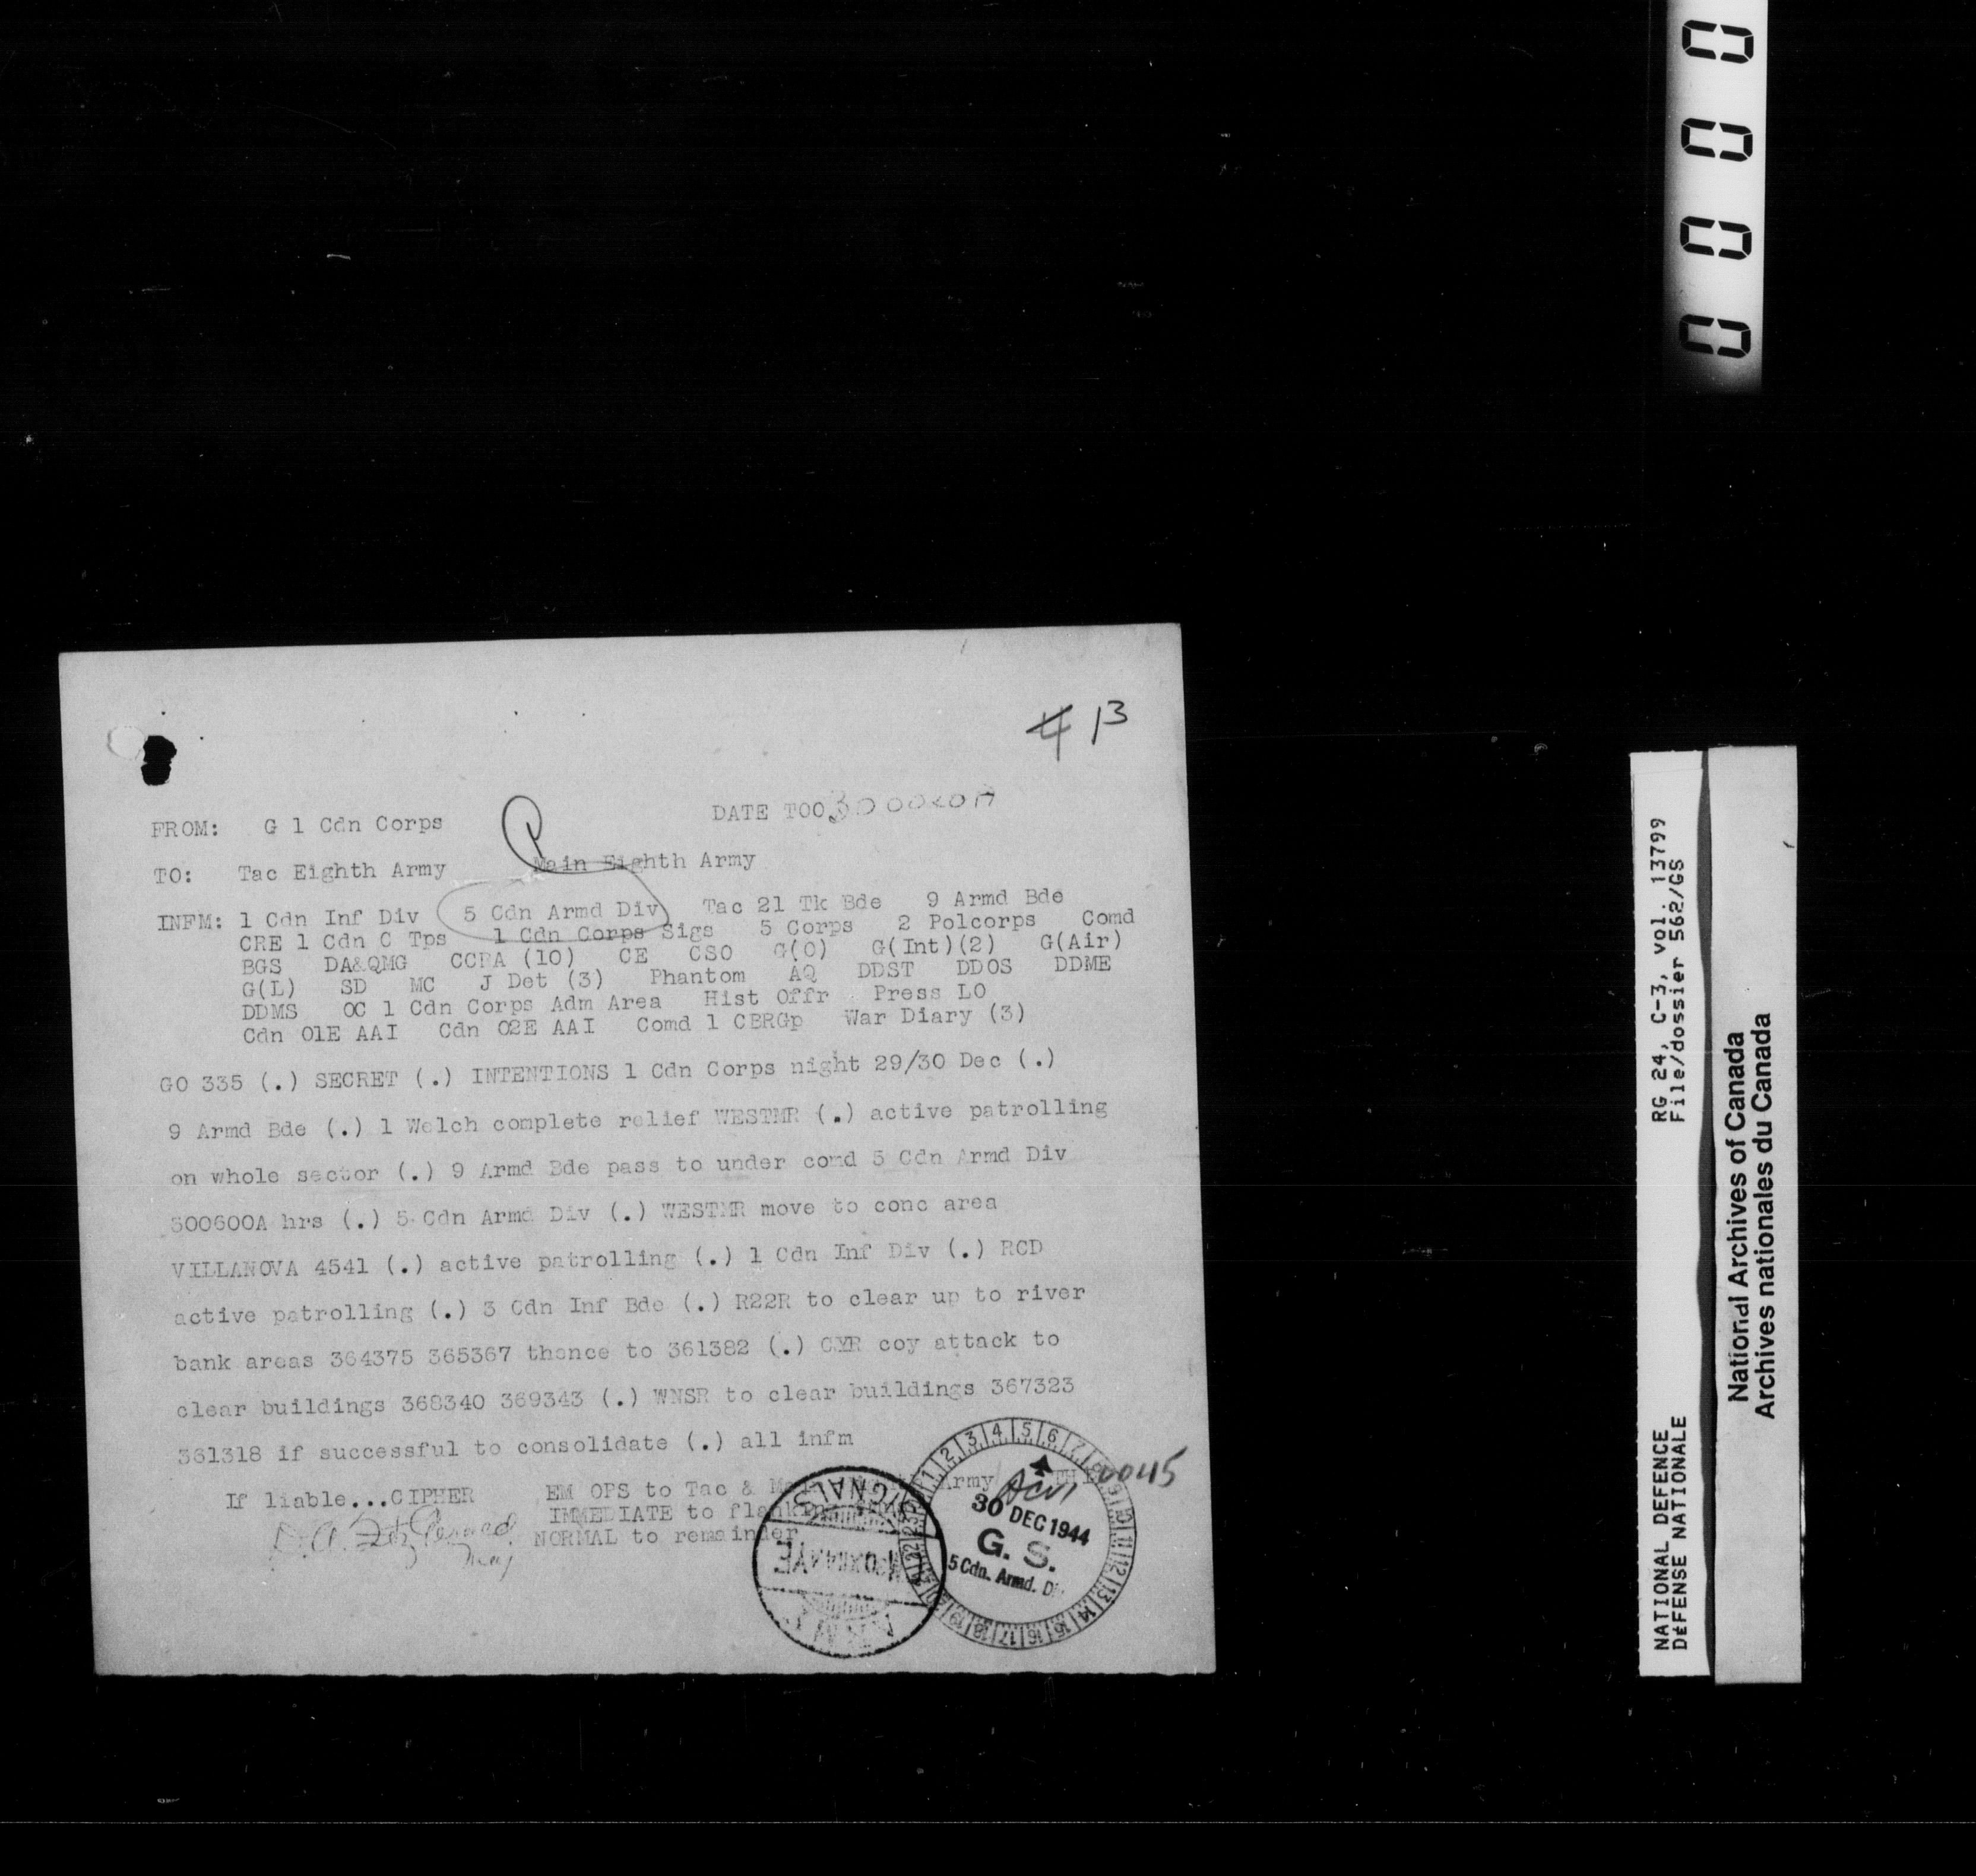 0 0 0 0
4 13
FROM: G 1 Cdn Corps DATE TOO 300020A
TO: Tac Eighth Army Main Eighth Army
INFM: 1 Cdn Inf Div 5 Cdn Armd Div Tac 21 Tk Bde 9 Armd Bde
CRE 1 Cdn C Tps 1 Cdn Corps Sigs 5 Corps 2 Polcorps Comd
BGS DA&QMG CCRA (10) CE CSO G(O) G(Int)(2) G(Air)
G(L) SD MC J Det (3) Phantom AQ DDST DDOS DDME
DDMS OC 1 Cdn Corps Adm Area Hist Offr Press LO
Cdn O1E AAI Cdn O2E AAI Comd 1 CBRGp War Diary (3)
GO 335 (.) SECRET (.) INTENTIONS 1 Cdn Corps night 29/30 Dec (.)
9 Armd Bde (.) 1 Welch complete relief WESTMR (.) active patrolling
on whole sector (.) 9 Armd Bde pass to under comd 5 Cdn Armd Div
300600A hrs (.) 5 Cdn Armd Div (.) WESTMR move to conc area
VILLANOVA 4541 (.) active patrolling (.) 1 Cdn Inf Div (.) RCD
active patrolling (.) 3 Cdn Inf Bde (.) R22R to clear up to river
bank areas 364375 365367 thence to 361382 (.) CYR coy attack to
clear buildings 368340 369343 (.) WNSR to clear buildings 367323
361318 if successful to consolidate (.) all infm
If liable...CIPHER EM OPS to Tac & Army 0045
IMMEDIATE to
NORMAL to remainder
Maj
SIGNALS
30 DEC 1944
G. S.
5 Cdn. Armd. Div
1 2 3 4 5 6 7 8 9 10 11 12 13 14 15 16 17 18 19 20 21 22 23
RG 24, C-3, vol. 13799
File/dossier 562/GS
NATIONAL DEFENCE
DÉFENSE NATIONALE
National Archives of Canada
Archives nationales du Canada